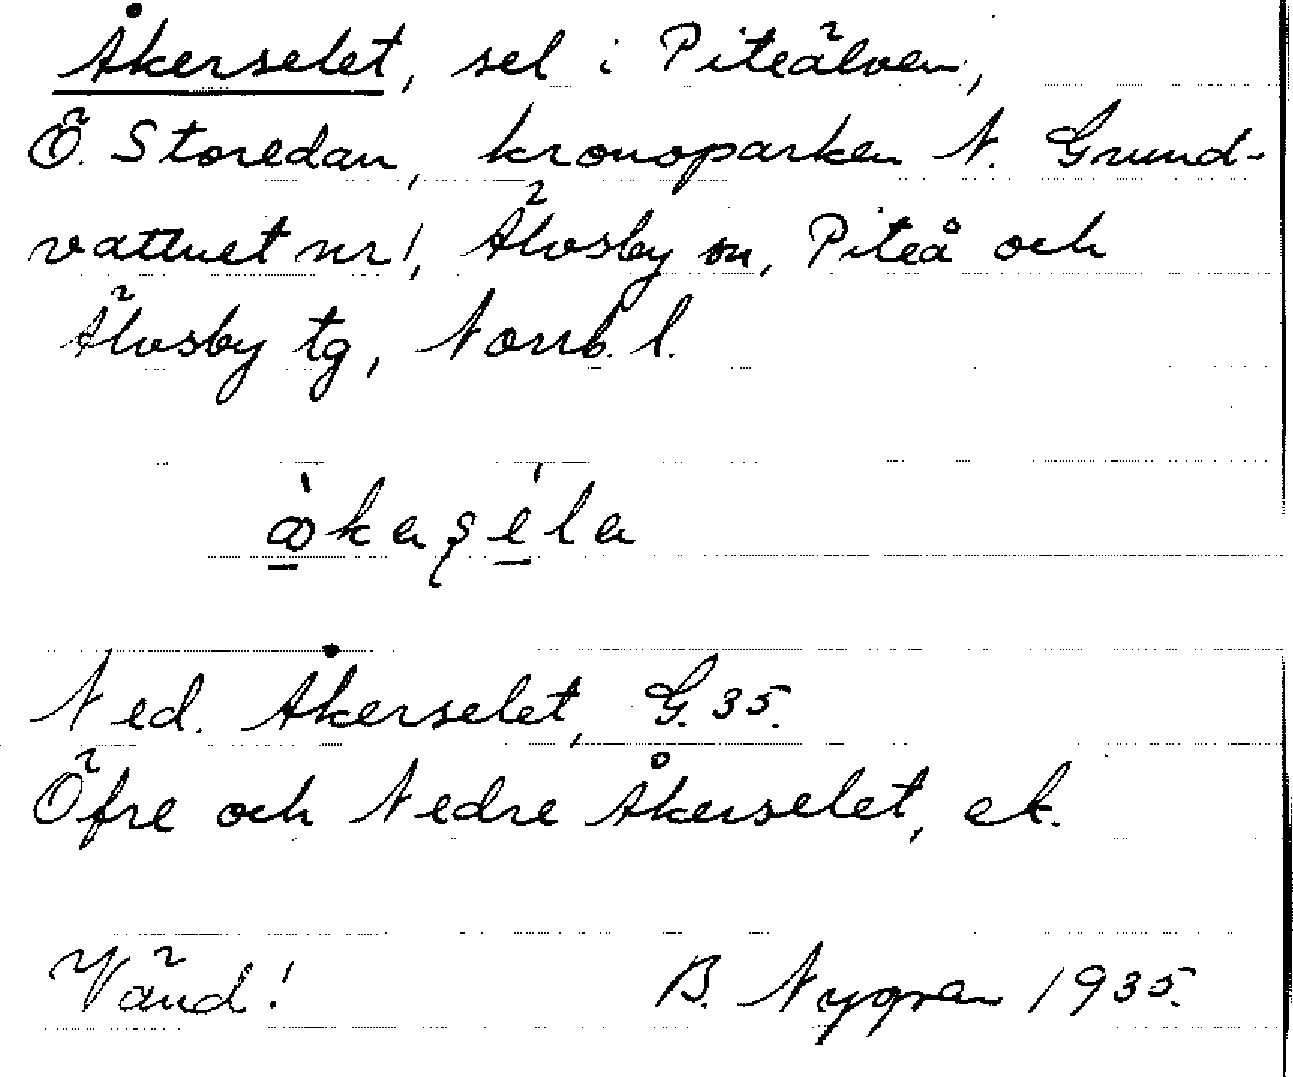 Åkerselet, sel i Piteälven,
Ö. Storedan, kronoparken N. Grund-
vattnet nr 1, Älvsby sn, Piteå och
Älvsby tg, Norrb. l.
Ned. Åkerselet, G. 35.
Öfre och Nedre Åkerselet, ek.
Vänd! B. Nygren 1935.